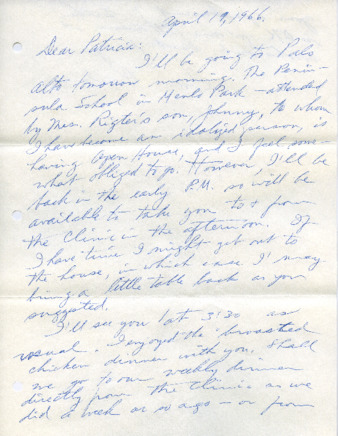 April 19, 1966.
Dear Patricia:
I'll be going to Palo
Alto tomorrow morning. The Penin-
sula School in Menlo Park - attended
by Mrs. Rigter's son, Johnny, to whom
I have become an idolized person, is
having Open House, and I feel some-
what obliged to go. However, I'll be
back in the early P.M. so will be
available to take you to & from
the Clinic in the afternoon. If
I have time I might get out to
the house, in which case I may
bring a little table back as you
suggested.
I'll see you at 3:30 as
usual. I enjoyed the broasted
chicken dinner with you. Shall
we go to our weekly dinner
directly from the Clinic as we
did a week or so ago - or from